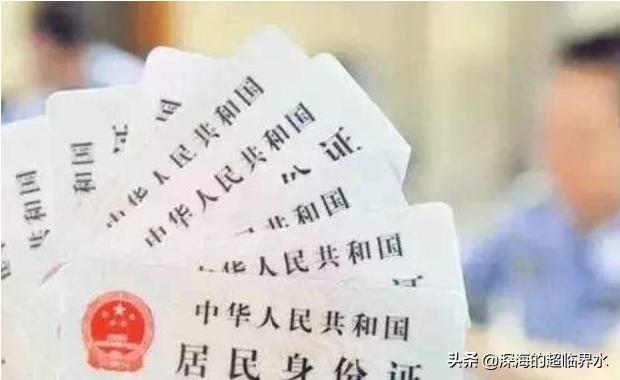 共和国
共和国
中华人民共和国
中华人民共和国
份证
人民共和国
华人民共和国
证
中华人民共和国
居民身份证
头条 @深海的超临界水